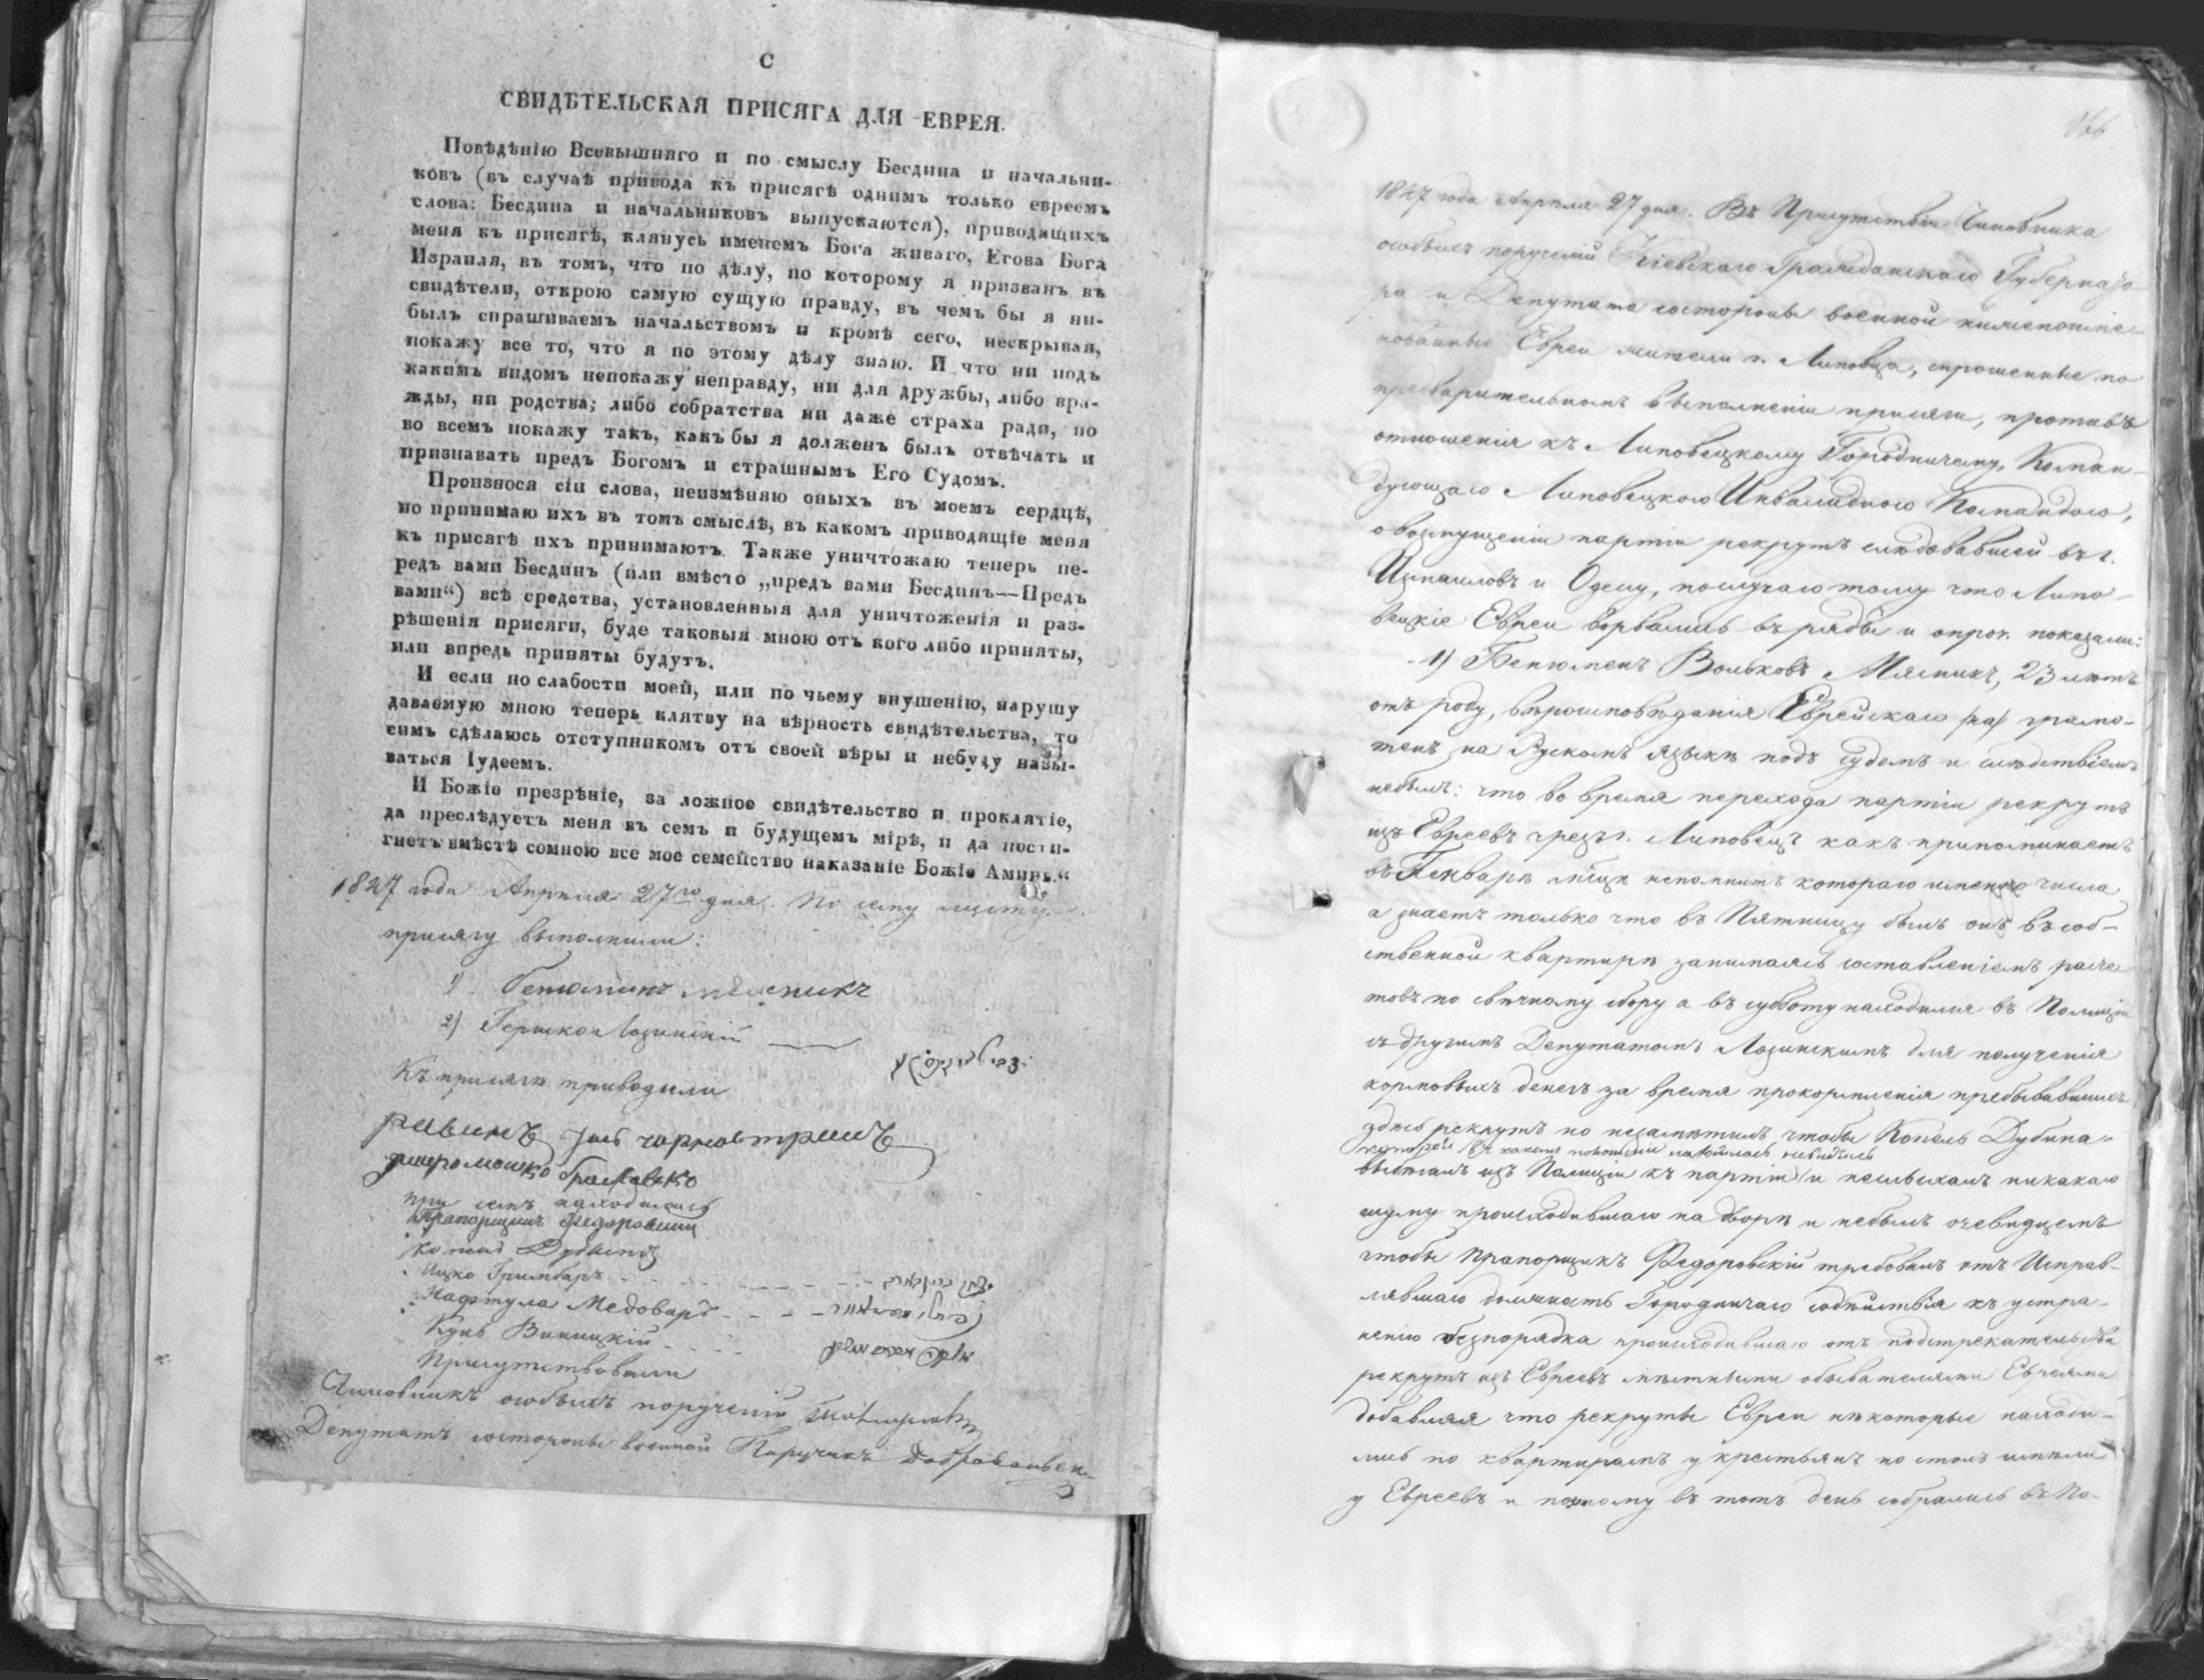 С
СВИДѢТЕЛЬСКАЯ ПРИСЯГА ДЛЯ ЕВРЕЯ.
Повѣдѣнію Всевышняго и по смыслу Бесдина и начальни-
ковъ (въ случаѣ привода къ присягѣ однимъ только евреемъ
слова: Бесдина и начальниковъ выпускаются), приводящихъ
меня къ присягѣ, клянусь именемъ Бога живаго, Егова Бога
Израиля, въ томъ, что по дѣлу, по которому я призванъ въ
свидѣтели, открою самую сущую правду, въ чемъ бы я ни-
былъ спрашиваемъ начальствомъ и кромѣ сего, нескрывая,
покажу все то, что я по этому дѣлу знаю. И что ни подъ
какимъ видомъ непокажу неправду, ни для дружбы, либо вра-
жды, ни родства; либо собратства ни даже страха ради, но
во всемъ покажу такъ, какъ бы я долженъ былъ отвѣчать и
признавать предъ Богомъ и страшнымъ Его Судомъ.
Произнося сіи слова, неизмѣняю оныхъ въ моемъ сердцѣ,
но принимаю ихъ въ томъ смыслѣ, въ какомъ приводящіе меня
къ присягѣ ихъ принимаютъ. Также уничтожаю теперь пе-
редъ вами Бесдинъ (или вмѣсто „предъ вами Бесдинъ—Предъ
вами“) всѣ средства, установленныя для уничтоженія и раз-
рѣшенія присяги, буде таковыя мною отъ кого либо приняты,
или впредь приняты будутъ.
И если по слабости моей, или по чьему внушенію, нарушу
даваемую мною теперь клятву на вѣрность свидѣтельства, то
симъ сдѣлаюсь отступникомъ отъ своей вѣры и небуду назы-
ваться Іудеемъ.
И Божіе презрѣніе, за ложное свидѣтельство и проклятіе,
да преслѣдуетъ меня въ семъ и будущемъ мірѣ, и да пости-
гнетъ вмѣстѣ сомною все мое семейство наказаніе Божіе Аминь.“
1847 года Апрѣля 27го дня. По сему листу
присягу выполнили:
1) Бенюминъ Мясникъ
2) Гершко Лозинскій
Къ присягѣ приводили
равинъ
при семъ находились
Прапорщикъ Федоровский
Ицко Гринбаръ
Нафтула Медоваръ
Кунь Винницкій
Присутствовали
Чиновникъ особыхъ порученій
Депутатъ состороны военной Поручикъ
1847 года Апрѣля 27 дня. Въ Присутствіи Чиновника
особыхъ порученій Кіевскаго Гражданскаго Губернато-
ра и Депутата состороны военной нижепоиме-
нованные Евреи жители г. Липовца, спрошенные по
предварительномъ выполненіи присяги, противъ
отношенія къ Липовецкому Городничему, Коман-
дующаго Липовецкою Инвалидною Командою,
о возпущеніи партіи рекрутъ слѣдовавшей въ г.
Измаиловъ и Одесу, послучаю тому что Липо-
вецкіе Евреи ворвались въ ряды и проч. показали:
1) Бенюменъ Вольковъ Мясникъ, 23 лѣтъ
отъ роду, вѣроисповѣданія Еврейскаго грамо-
тенъ на Рускомъ языкѣ подъ судомъ и слѣдствіемъ
небылъ: что во время перехода партіи рекрутъ
изъ Евреевъ чрезъ г. Липовецъ какъ припоминаетъ
въ Генварѣ мѣцѣ непомнитъ котораго именно числа
а знаетъ только что въ Пятницу былъ онъ въ соб-
ственной квартирѣ занимаясь составленіемъ расче-
товъ по свѣчному сбору а въ субботу находился въ Полиціи
съ другимъ Депутатомъ Лозинскимъ для полученія
кормовыхъ денегъ за время прокормленія пребывавшихъ
здѣсь рекрутъ но незамѣтилъ чтобы Копель Дубина
выбѣгалъ изъ Полиціи къ партіи и неслыхалъ никакаго
шуму происходившаго на дворѣ и небылъ очевидцемъ
чтобы Прапорщикъ Федоровскій требовалъ отъ Исправ-
лявшаго должность Городничаго содѣйствія къ устра-
ненію безпорядка происходившаго отъ подстрекательства
рекрутъ изъ Евреевъ мѣстными обывателями Евреями
добавляя что рекруты Евреи нѣкоторые находи-
лись по квартирамъ у крестьянъ но столъ имѣли
у Евреевъ и потому въ тотъ день собрались въ По-